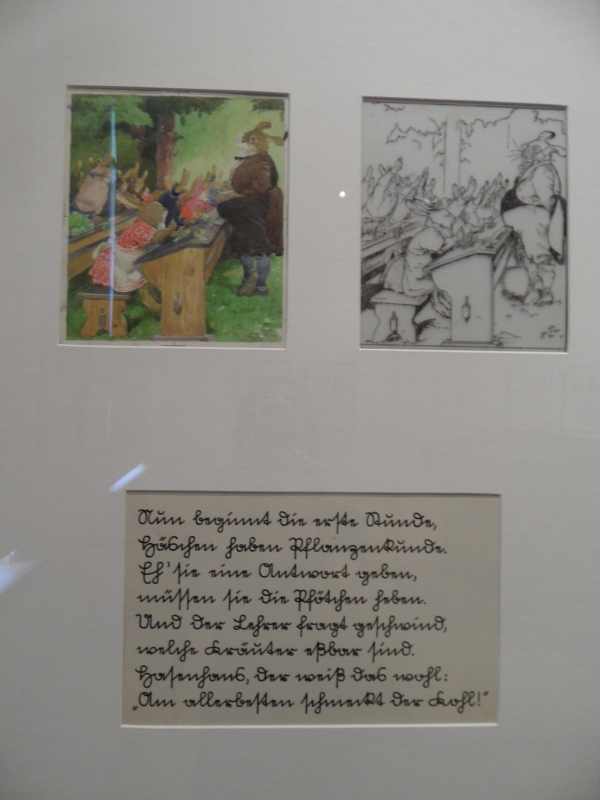 Nun beginnt die erste Stunde,
Häschen haben Pflanzenkunde.
Eh' sie eine Antwort geben,
müssen sie die Pfötchen heben.
Und der Lehrer fragt geschwind,
welche Kräuter eßbar sind.
Hasenhans, der weiß das wohl:
„Am allerbesten schmeckt der Kohl!"